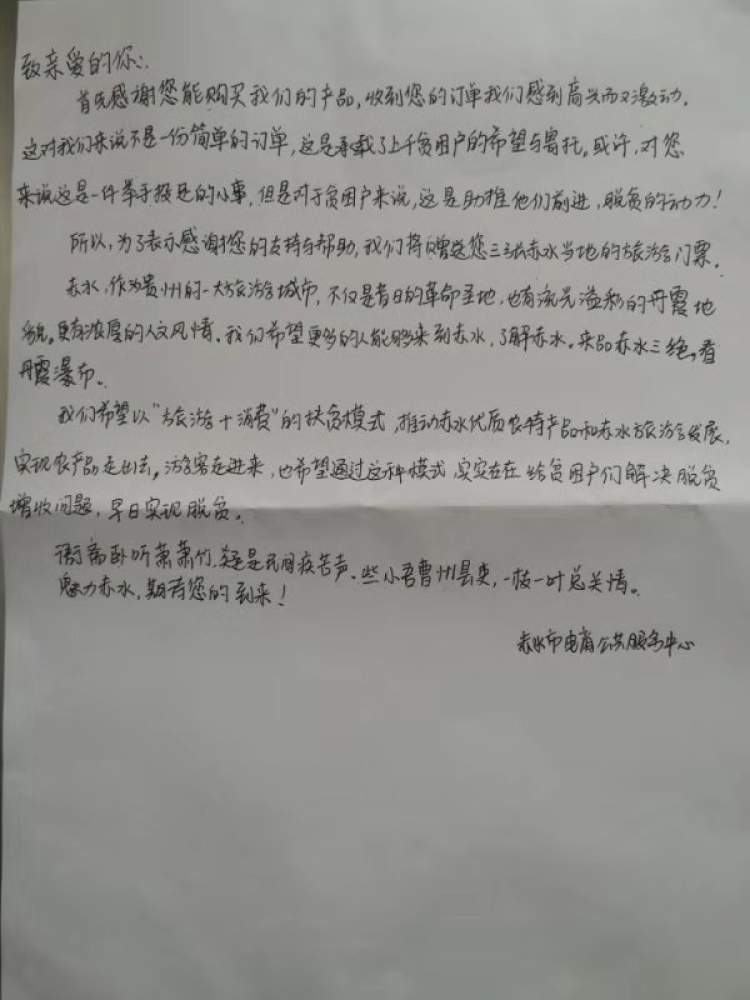 致亲爱的你:
首先感谢您能购买我们的产品,收到您的订单我们感到高兴而又激动.
这对我们来说不是一份简单的订单,这是承载了上千贫困户的希望与寄托。或许,对您
来说这是一件举手投足的小事,但是对于贫困户来说,这是助推他们前进,脱贫的动力!
所以,为了表示感谢您的支持与帮助,我们将赠送您三张赤水当地的旅游门票.
赤水,作为贵州的一大旅游城市,不仅是昔日的革命圣地,也有流光溢彩的丹霞地
貌。更有浓厚的人文风情.我们希望更多的人能够来到赤水,了解赤水.来品赤水三绝。看
丹霞瀑布.
我们希望以"旅游+消费"的扶贫模式,推动赤水优质农特产品和赤水旅游发展,
实现农产品走出去。游客走进来,也希望通过这种模式实实在在给贫困户们解决脱贫
增收问题,早日实现脱贫。
衙斋卧听萧萧竹.疑是民间疾苦声.些小吾曹州县吏,一枝一叶总关情。
魅力赤水,期待您的到来!
赤水市电商公共服务中心